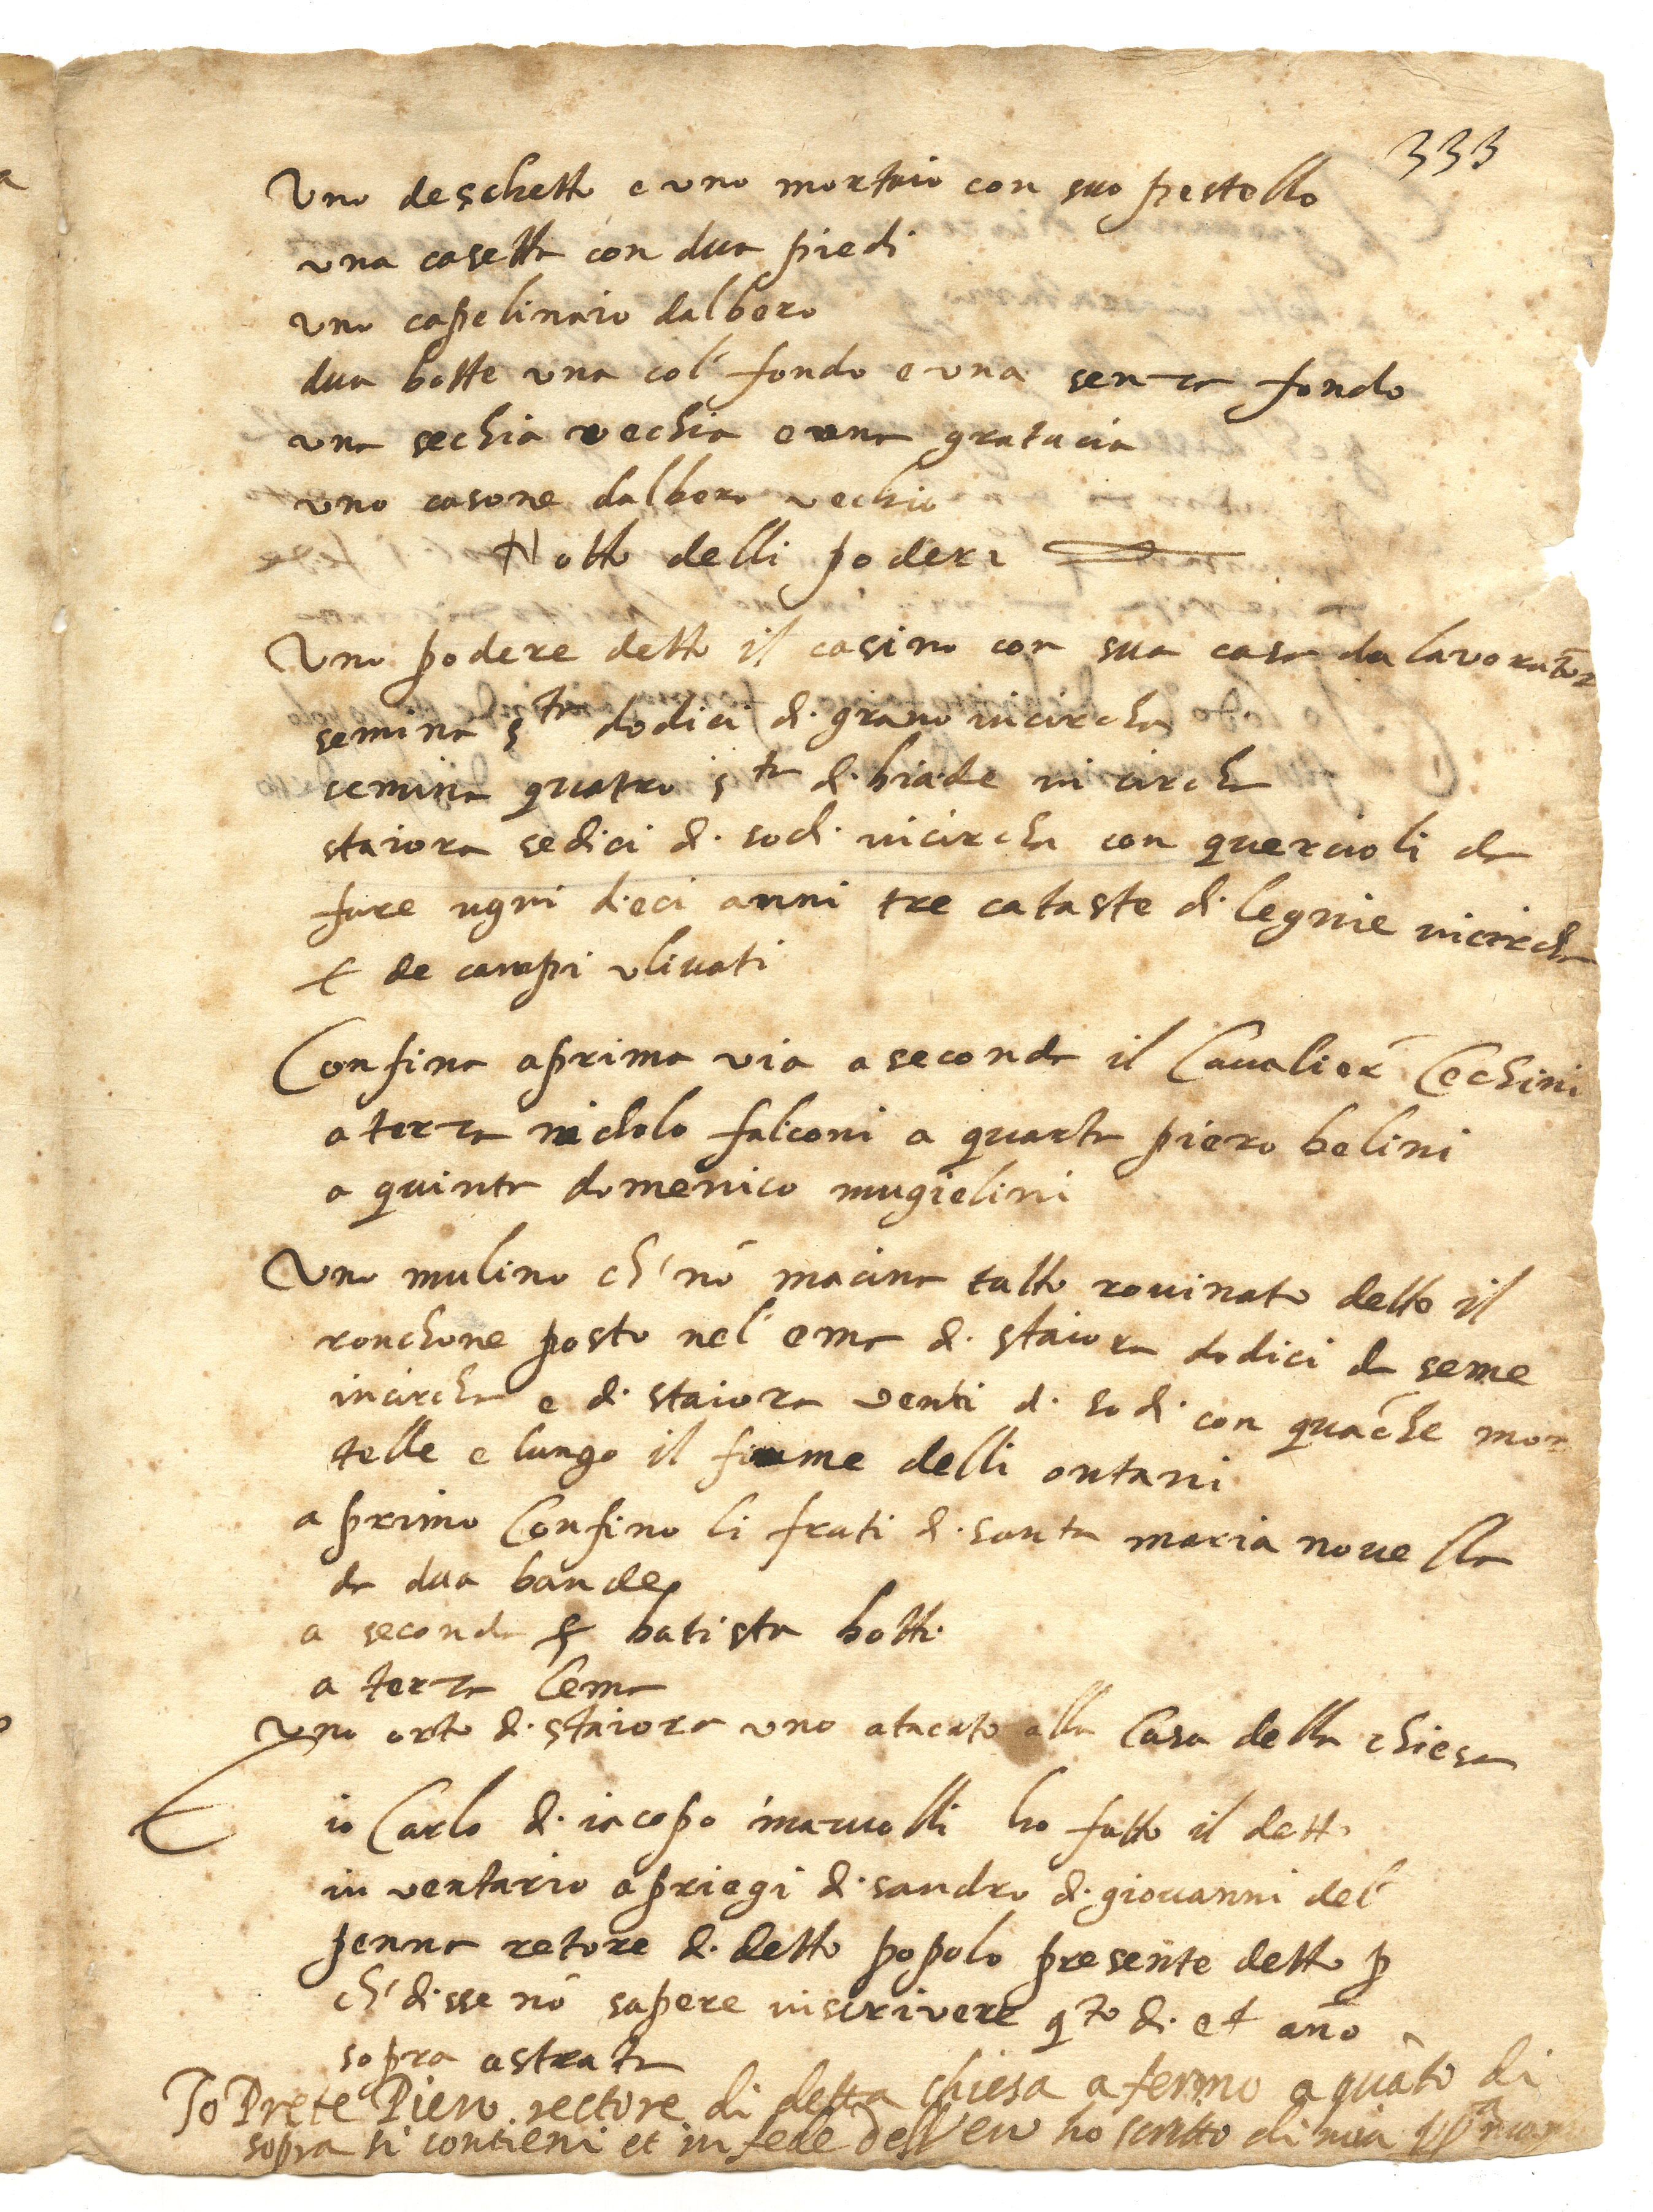 333
Uno deschetto e uno mortaio con suo pestello
una casetta con dua piedi
uno capelinaio dalbero
dua botte una col fondo e una senza fondo
una sechia vechia e una gratucia
uno casone dalbero vechio
Notto delli poderi
Uno podere detto il casino con sua casa da lavorator
semina str dodici di grano incircha
semina quatro str di biade incircha
staiora sedici di sodi incircha con quercioli da
fare ugni dieci anni tre cataste di legnie incircha
E de campi ulivati
Confina a prima via a seconda il Cavalier Cechini
a terza nicholo falconi a quarta piero belini
a quinta domenico mugielini
Uno mulino ch' nō macina tutto rovinato detto il
ronchone posto nel ema di staiora dodici da seme
incircha e di staiora venti di sodi con quache mor
telle e lungo il fiume delli ontani
a primo Confino li frati di santa maria novella
da dua bande
a seconda batista botti
a terza lema
Uno orto di staiora uno atacato alla Casa della chiesa
io Carlo di iacopo ho fatto il detto
inventario a priegi di sandro di giovanni del
penna retore di detto popolo presente detto p
ch' disse nō sapere inscrivere qto dì et año
sopra astrata
Io Prete Piero rectore di detta chiesa afermo a quāto di
sopra si contieni et in fede dell vero ho scritto di mia ppa mano